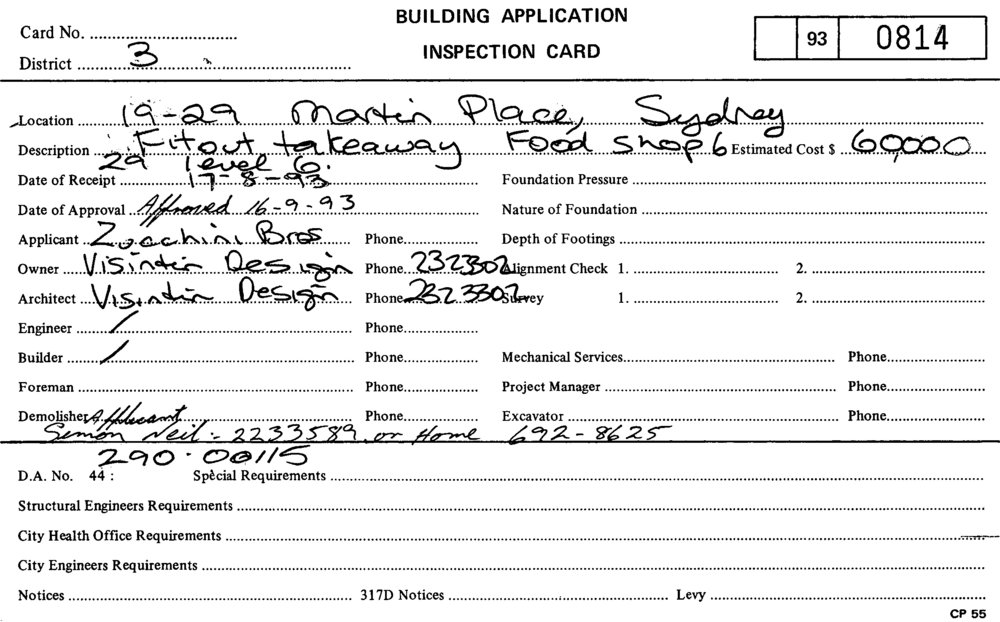 BUILDING APPLICATION
INSPECTION CARD
93 0814
Card No.
District 3
Location 19-29 Martin Place, Sydney
Description Fitout takeaway Food Shop 6 Estimated Cost $ 60,000
29 level 6.
Date of Receipt 17-8-93 Foundation Pressure
Date of Approval Approved 16-9-93 Nature of Foundation
Applicant Zucchini Bros Phone Depth of Footings
Owner Visintin Design Phone 2323302 Alignment Check 1. 2.
Architect Visintin Design Phone 2323302 Survey 1. 2.
Engineer / Phone
Builder / Phone Mechanical Services Phone
Foreman Phone Project Manager Phone
Demolisher Applicant Phone Excavator Phone
Simon Neil :- 2233589 or Home 692-8625
290.00115
D.A. No. 44 : Special Requirements
Structural Engineers Requirements
City Health Office Requirements
City Engineers Requirements
Notices 317D Notices Levy
CP 55